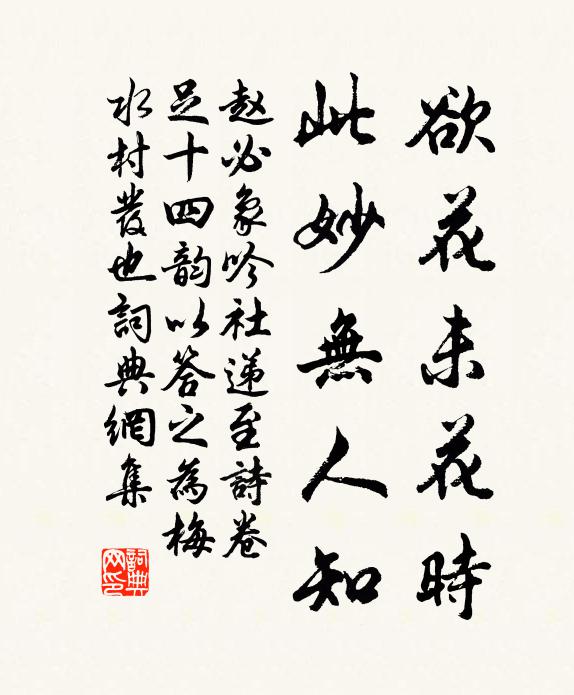 欲花未花時
此妙無人知
赵必象吟社递至詩卷
足十四韵以答之為梅
水村發也詞典網集
詞典網印